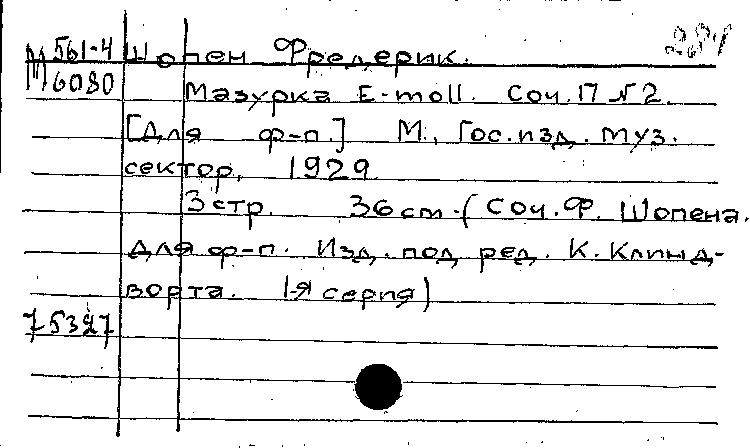 М 561-4 Шопен Фредерик. 284
6080 Мазурка E-moll. Соч. 17 N 2.
[Для ф-п.] М., Гос. изд. муз.
сектор, 1929
3 стр. 36 см. (Соч. Ф. Шопена.
для ф-п. Изд. под ред. К. Клинд-
ворта. 1-я серия)
75327